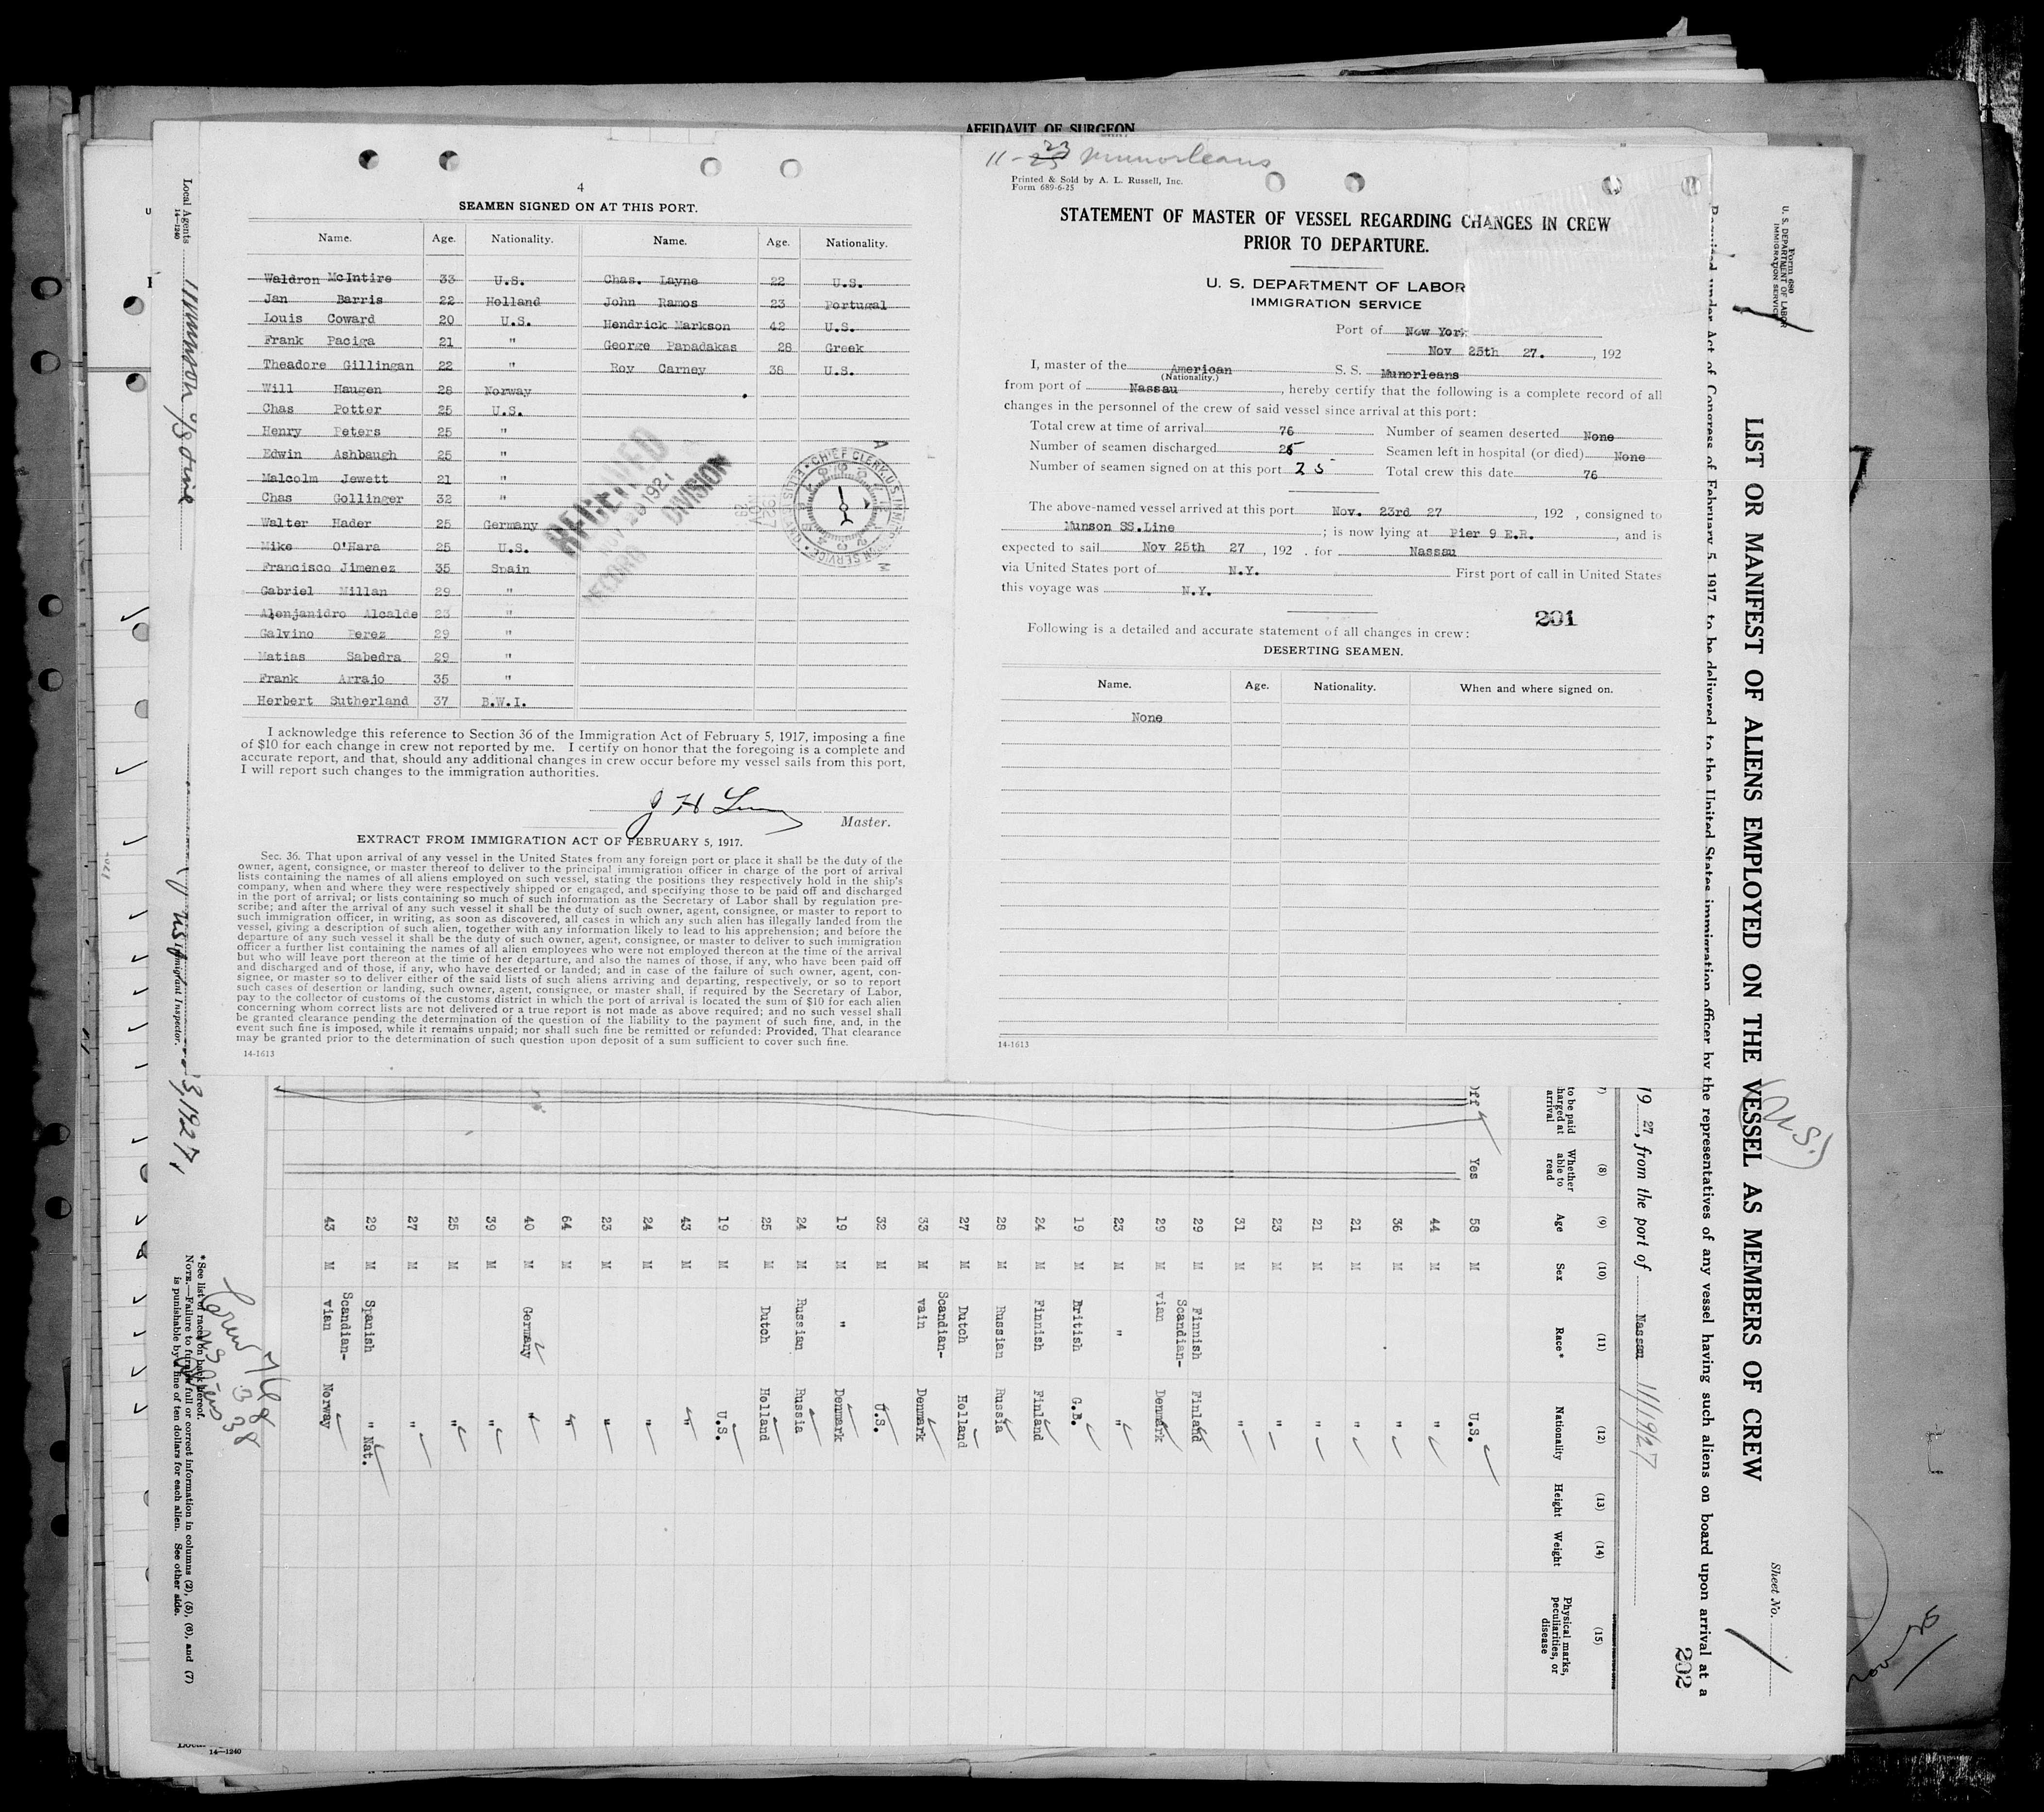 AFFIDAVIT OF SURGEON
4
SEAMEN SIGNED ON AT THIS PORT.
Name. Age. Nationality. Name. Age. Nationality.
Waldron McIntire 33 U.S. Chas. Layne 22 U.S.
Jan Barris 22 Holland John Ramos 23 Portugal
Louis Coward 20 U.S. Hendrick Markson 42 U.S.
Frank Paciga 21 " George Papadakas 28 Greek
Theadore Gillingan 22 " Roy Carney 38 U.S.
Will Haugen 28 Norway
Chas Potter 25 U.S.
Henry Peters 25 "
Edwin Ashbaugh 25 "
Malcolm Jewett 21 "
Chas Gollinger 32 "
Walter Hader 25 Germany
Mike O'Hara 25 U.S.
Francisco Jimenez 35 Spain
Gabriel Millan 29 "
Alenjanidro Alcalde 23 "
Galvino Perez 29 "
Matias Sabedra 29 "
Frank Arrajo 35 "
Herbert Sutherland 37 B.W.I.
RECEIVED
DIVISION
RECORD
CHIEF CLERK U.S. IMMIGRATION SERVICE
I acknowledge this reference to Section 36 of the Immigration Act of February 5, 1917, imposing a fine
of $10 for each change in crew not reported by me. I certify on honor that the foregoing is a complete and
accurate report, and that, should any additional changes in crew occur before my vessel sails from this port,
I will report such changes to the immigration authorities.
Master.
EXTRACT FROM IMMIGRATION ACT OF FEBRUARY 5, 1917.
Sec. 36. That upon arrival of any vessel in the United States from any foreign port or place it shall be the duty of the
owner, agent, consignee, or master thereof to deliver to the principal immigration officer in charge of the port of arrival
lists containing the names of all aliens employed on such vessel, stating the positions they respectively hold in the ship's
company, when and where they were respectively shipped or engaged, and specifying those to be paid off and discharged
in the port of arrival; or lists containing so much of such information as the Secretary of Labor shall by regulation pre-
scribe; and after the arrival of any such vessel it shall be the duty of such owner, agent, consignee, or master to report to
such immigration officer, in writing, as soon as discovered, all cases in which any such alien has illegally landed from the
vessel, giving a description of such alien, together with any information likely to lead to his apprehension; and before the
departure of any such vessel it shall be the duty of such owner, agent, consignee, or master to deliver to such immigration
officer a further list containing the names of all alien employees who were not employed thereon at the time of the arrival
but who will leave port thereon at the time of her departure, and also the names of those, if any, who have been paid off
and discharged and of those, if any, who have deserted or landed; and in case of the failure of such owner, agent, con-
signee, or master so to deliver either of the said lists of such aliens arriving and departing, respectively, or so to report
such cases of desertion or landing, such owner, agent, consignee, or master shall, if required by the Secretary of Labor,
pay to the collector of customs of the customs district in which the port of arrival is located the sum of $10 for each alien
concerning whom correct lists are not delivered or a true report is not made as above required; and no such vessel shall
be granted clearance pending the determination of the question of the liability to the payment of such fine, and, in the
event such fine is imposed, while it remains unpaid; nor shall such fine be remitted or refunded: Provided, That clearance
may be granted prior to the determination of such question upon deposit of a sum sufficient to cover such fine.
14-1613
11-23 Munorleans
Printed & Sold by A. L. Russell, Inc.
Form 689-6-25
STATEMENT OF MASTER OF VESSEL REGARDING CHANGES IN CREW
PRIOR TO DEPARTURE.
U. S. DEPARTMENT OF LABOR
IMMIGRATION SERVICE
Port of New York
Nov 25th 27. , 192
I, master of the American S. S. Munorleans
(Nationality.)
from port of Nassau , hereby certify that the following is a complete record of all
changes in the personnel of the crew of said vessel since arrival at this port:
Total crew at time of arrival 76 Number of seamen deserted None
Number of seamen discharged 25 Seamen left in hospital (or died) None
Number of seamen signed on at this port 25 Total crew this date 76
The above-named vessel arrived at this port Nov. 23rd 27 , 192 , consigned to
Munson SS.Line ; is now lying at Pier 9 E.R. , and is
expected to sail Nov 25th 27 , 192 . for Nassau
via United States port of N.Y. First port of call in United States
this voyage was N.Y.
201
Following is a detailed and accurate statement of all changes in crew:
DESERTING SEAMEN.
Name. Age. Nationality. When and where signed on.
None
14-1613
Form 680
U. S. DEPARTMENT OF LABOR
IMMIGRATION SERVICE
LIST OR MANIFEST OF ALIENS EMPLOYED ON THE VESSEL AS MEMBERS OF CREW
(U.S.)
Sheet No.
Required under Act of Congress of February 5, 1917, to be delivered to the United States immigration officer by the representatives of any vessel having such aliens on board upon arrival at a
202
19 27, from the port of Nassau 11/19/27
(8) (9) (10) (11) (12) (13) (14) (15)
to be paid
harged at
arrival
Whether able to read Age Sex Race* Nationality Height Weight Physical marks, peculiarities, or disease
Off Yes 58 M U.S.
44 M "
36 M "
21 M "
21 M "
23 M "
31 M "
29 M Finnish Finland
29 M Scandian-vian Denmark
23 M " "
19 M British G.B.
24 M Finnish Finland
28 M Russian Russia
27 M Dutch Holland
33 M Scandian-vain Denmark
32 M U.S.
19 M " Denmark
24 M Russian Russia
25 M Dutch Holland
19 M U.S.
43 M "
24 M "
23 M "
64 M "
40 M Germany "
39 M "
25 M "
27 M "
29 M Spanish " Nat.
43 M Scandian-vian Norway
Crew 76
*See list of races on back hereof.
NOTE.—Failure to furnish full or correct information in columns (2), (5), (6), and (7)
is punishable by a fine of ten dollars for each alien. See other side.
Local Agents Munson S/S Line
14—1240
Immigrant Inspector.
3, 1927,
14—1240
Nov 25